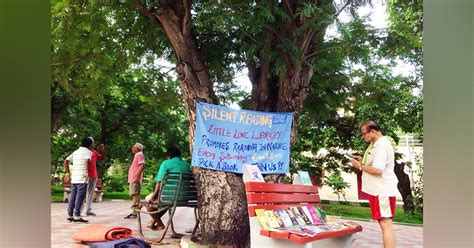 SILENT READING
LITTLE LOVE LIBRARY
PROMOTES READING IN NATURE
EVERY SATURDAY
PICK A US